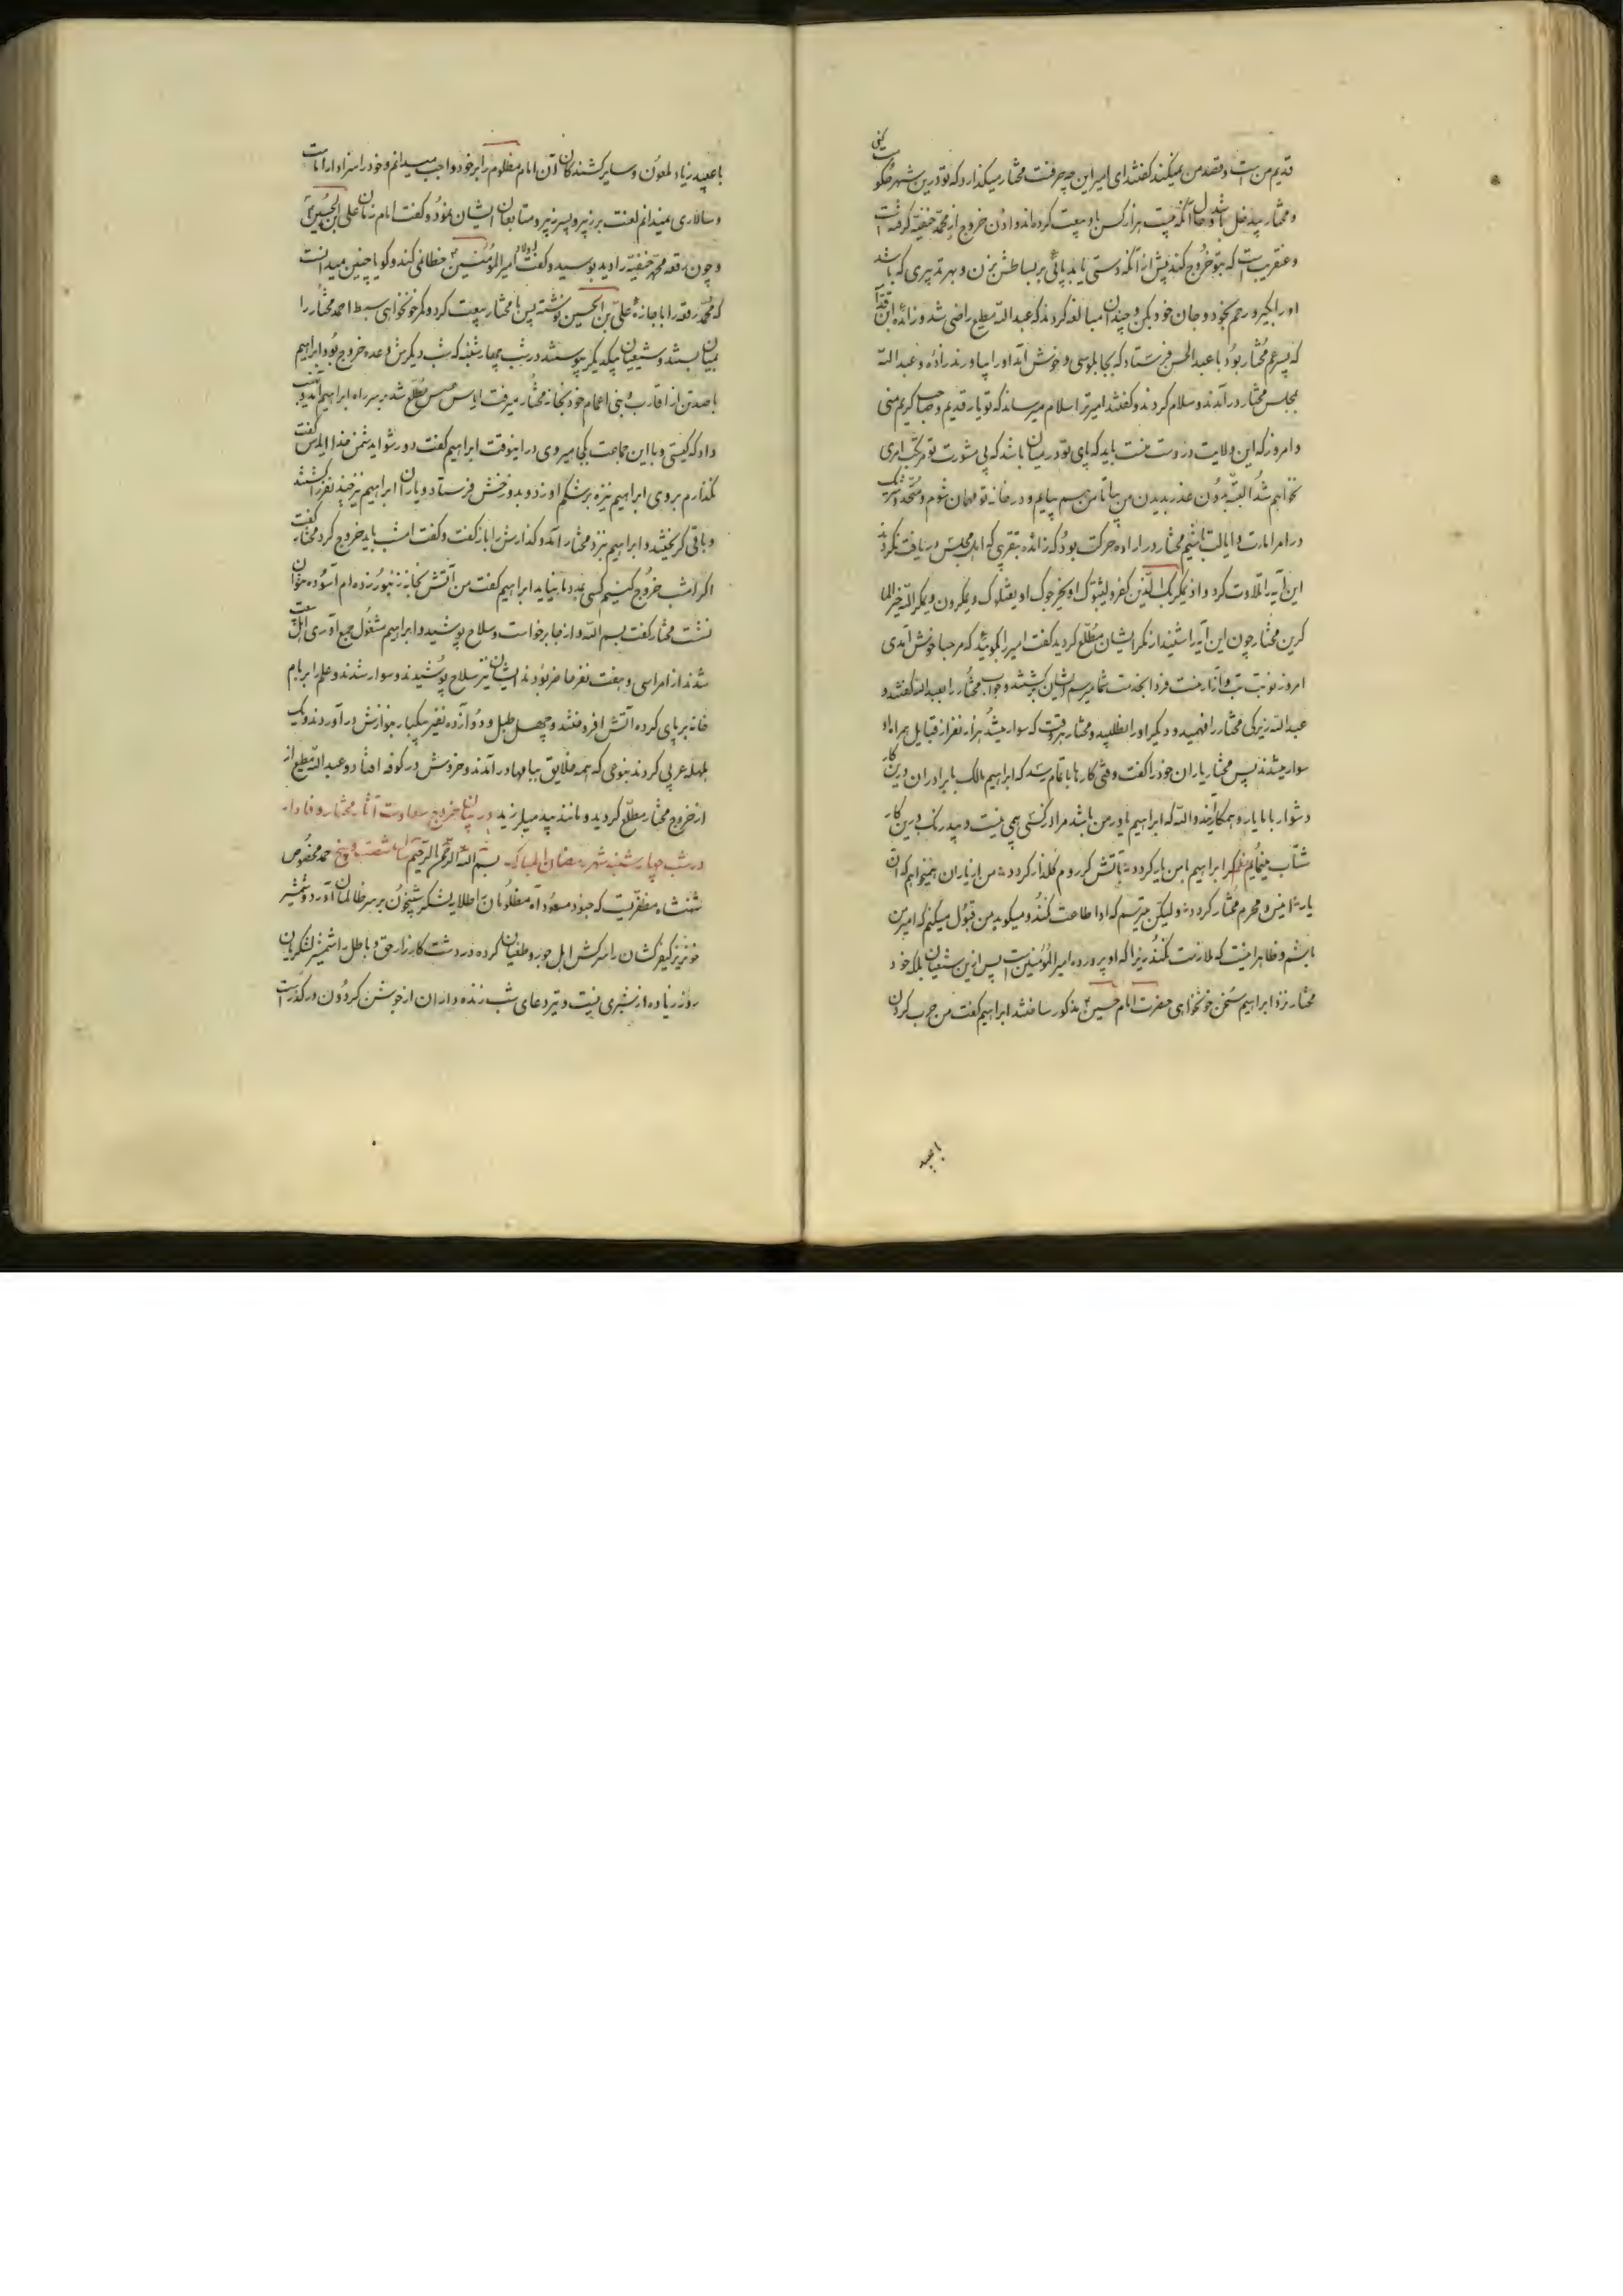 قدیم من است و قصد من نمیکند گفتند ای امیر این چه حرفست مختار میگذارد که تو درین شهر حکومت کنی
و مختار بیدخل باشد و حال آنکه بیست هزار کس باو بیعت کرده‌اند و اذن خروج از محمد حنفیه گرفته است
و عنقریب است که بتو خروج کند پیش از آنکه دستی یابد پائی بر بساطش بزن و بهر تدبیری که باشد
او را بگیر و رحم بخود و جان خود بکن و چندان مبالغه کردند که عبد الله مطیع راضی شد و زائده ابن قدامه
که پسر عم مختار بود با عبد الحسن فرستاد که بچابلوسی و خوش آمد او را بیاورند زائده و عبد الله
بمجلس مختار در آمدند و سلام کردند و گفتند امیر ترا سلام میرساند که تو یار قدیم و صاحب کریم منی
و امروز که این ولایت در دست منست باید که پای تو در میان باشد که بی مشورت تو مرتکب امری
نخواهم شد البته بدون عذر بدیدن من بیا تا من هم بیایم و در خانه تو مهمان شوم و متحد و شریک
در امر امارت و ایالت باشیم مختار در اراده حرکت بود که زائده بتقریبی که اهل مجلس دریافت نکردند
این آیه را تلاوت کرد و اذ یمکر بک الذین کفرو لیثبتوک او یخرجوک او یقتلوک و یمکرون و یمکر الله و الله خیر الما
کرین مختار چون این آیه را شنید از مکر ایشان مطلع گردید گفت امیر را بگوئید که مرحبا خوش آمدی
امروز نوبت تب و آزار منست فردا بخدمت شما میرسم ایشان برگشتند و جواب مختار را بعبد الله گفتند و
عبد الله زیرکی مختار را فهمید و دیگر او را نطلبید و مختار هر وقت که سوار میشد هزار نفر از قبایل همراه او
سوار میشدند پس مختار یاران خود را گفت وقتی کارها باتمام رسد که ابراهیم مالک با برادران درین کار
دشوار با ما یار و همکار آیند و الله که ابراهیم یاور من باشد مرا از کسی بیمی نیست و بیدرنگ درین کار
شتاب مینمایم نظم گر ابراهیم با من یار گردد بآتش گر روم گلزار گردد من از یاران همینخواهم که آن
یار انیس و محرم مختار گردد ولیکن میترسم که او اطاعت نکند و میگوید من قبول میکنم که امیر من
باشم و ظاهر اینست که ملازمت نکند زیرا که او پرورده امیر المؤمنین است پس ازین شیعیان بلکه خود
مختار نزد ابراهیم سخن خونخواهی حضرت امام حسین مذکور ساختند ابراهیم گفت من حرب کردن
با عبید
با عبید زیاد ملعون و سایر کشندگان آن امام مظلوم را بر خود واجب میدانم و خود را سزاوار امامت
و سالاری نمیدانم لعنت بر زبیر و پسر زبیر و متابعان ایشان نمود و گفت امام زمان علی ابن الحسین است
و چون رقعه محمد حنفیه را دید بوسید و گفت اولاد امیر المؤمنین خطائی نکند و گویا چنین میدانست
که محمد رقعه را باجازه علی بن الحسین نوشته پس با مختار بیعت کرد و کمر خونخواهی سبط احمد مختار را
بمیان بستند و شیعیان بیکدیگر پیوستند در شب چهارشنبه که شب دیگرش وعده خروج بود ابراهیم
با صد تن از اقارب و بنی اعمام خود بخانه مختار میرفت ایاس عسس مطلع شد بر سر راه ابراهیم آمد نهیب
داد که کیستی و با این جماعت بکجا میروی در اینوقت ابراهیم گفت دور شو ای دشمن خدا ایاس گفت
نگذارم بروی ابراهیم نیزه بر شکم او زد و بدوزخش فرستاد و یاران ابراهیم نیز چند نفر را کشتند
و باقی گریختند و ابراهیم نزد مختار آمد و گذارش را باز گفت و گفت امشب باید خروج کرد مختار گفت
اگر امشب خروج کنیم کسی بمدد ما نیاید ابراهیم گفت من آتش بخانه زنبور زده‌ام آسوده نتوان
نشست مختار گفت بسم الله و از جا برخواست و سلاح پوشید و ابراهیم مشغول جمع آوری اهل بیعت
شدند از امرا سی و هفت نفر حاضر بودند ایشان نیز سلاح پوشیدند و سوار شدند و علم را بر بام
خانه بر پای کرده آتش افروختند و چهل طبل و دوازده نفیر بیکبار بنوازش در آوردند و یک
هلهله عربی کردند بنوعی که همه خلایق ببامها در آمدند و خروش در کوفه افتاد و عبد الله مطیع از
از خروج مختار مطلع گردید و مانند بید میلرزید در بیان خروج سعادت آثار مختار وفادار
در شب چهارشنبه شهر رمضان المبارک بسم الله الرحمن الرحیم شصت و پنج حمد مخصوص
شهنشاه مظفریست که جنود مسعود آه مظلومان اطلایه لشکر شبیخون بر سر ظالمان آورد و شمشیر
خونریز کیفر کشان را سرکش اهل جور و طغیان کرده در دشت کارزار حق و باطل را شمشیر لشکریان
روز زیاده از نشتری نیست و تیر دعای شب زنده داران از جوشن گردون در گذر است